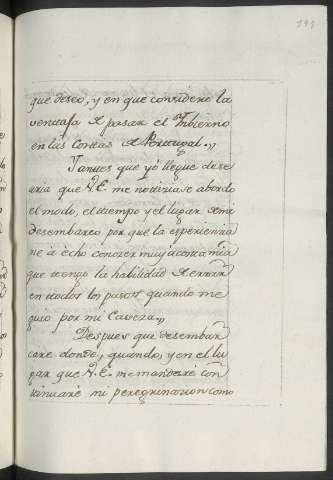 199
que deseo, y en que considere la
ventaja de pasar el Imbierno
en las Costas de Portugal.,,
Tantes que yo llegue dese
aria que V.E. me noticiase abordo
el modo, el tiempo y el lugar de mi
desembarco por que la esperienzia
me á echo conozer muy acosta mia
que tengo la habilidad de errar
en todos los pasos quando me
guio por mi Caveza.,,
Despues que desembar
care donde, quando, y en el lu
gar que V.E. me mandare con
tinuaré mi peregrinazion como